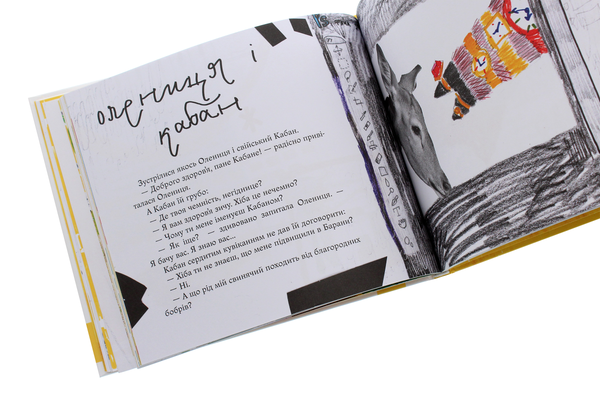 Олениця і
Кабан
Зустрілися якось Олениця і свійський Кабан.
— Доброго здоров'я, пане Кабане! — радісно приві-
талася Олениця.
А Кабан їй грубо:
— Де твоя чемність, негіднице?
— Я вам здоров'я зичу. Хіба це нечемно?
— Чому ти мене іменуєш Кабаном?
— Як іще? — здивовано запитала Олениця. —
Я бачу вас. Я знаю вас...
Кабан сердитим кувіканням не дав їй договорити:
— Хіба ти не знаєш, що мене підвищили в Барани?
— Ні.
— А що рід мій свинячий походить від благородних
бобрів?